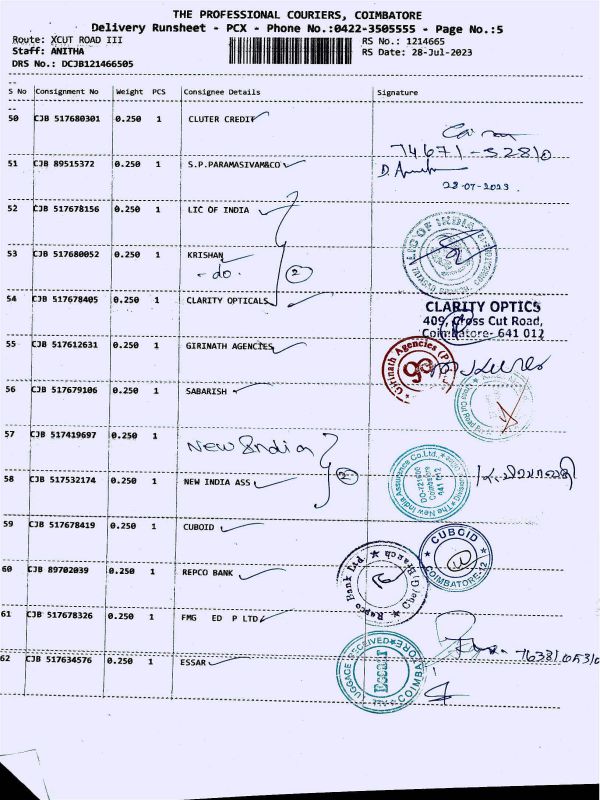 THE PROFESSIONAL COURIERS, COIMBATORE
Delivery Runsheet - PCX - Phone No.:0422-3505555 - Page No.:5
Route: XCUT ROAD III
RS No.: 1214665
Staff: ANITHA
RS Date: 28-Jul-2023
DRS No.: DCJB121466505
S No Consignment No Weight PCS Consignee Details Signature
50 CJB 517680301 0.250 1 CLUTER CREDIT
74671-52810
51 CJB 89515372 0.250 1 S.P.PARAMASIVAM&CO
28-07-2023
52 CJB 517678156 0.250 1 LIC OF INDIA
LIC OF INDIA
53 CJB 517680052 0.250 1 KRISHAN
-do. 2
54 CJB 517678405 0.250 1 CLARITY OPTICALS
CLARITY OPTICS
409, Cross Cut Road,
Coimbatore- 641 012
55 CJB 517612631 0.250 1 GIRINATH AGENCIES
Girinath Agencies (P)
56 CJB 517679106 0.250 1 SABARISH
Cross Cut Road
57 CJB 517419697 0.250 1 New India
The New India Assurance Co.Ltd.,
Coimbatore
641 012
58 CJB 517532174 0.250 1 NEW INDIA ASS 2
59 CJB 517678419 0.250 1 CUBOID
CUBOID
COIMBATORE-12
60 CJB 89702039 0.250 1 REPCO BANK
Repco Bank Ltd.
61 CJB 517678326 0.250 1 FMG ED P LTD
62 CJB 517634576 0.250 1 ESSAR
LUGGAGE RECEIVED
Essaar